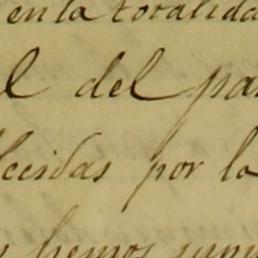 en la totalida
l del pa
lecidas por la
hemos